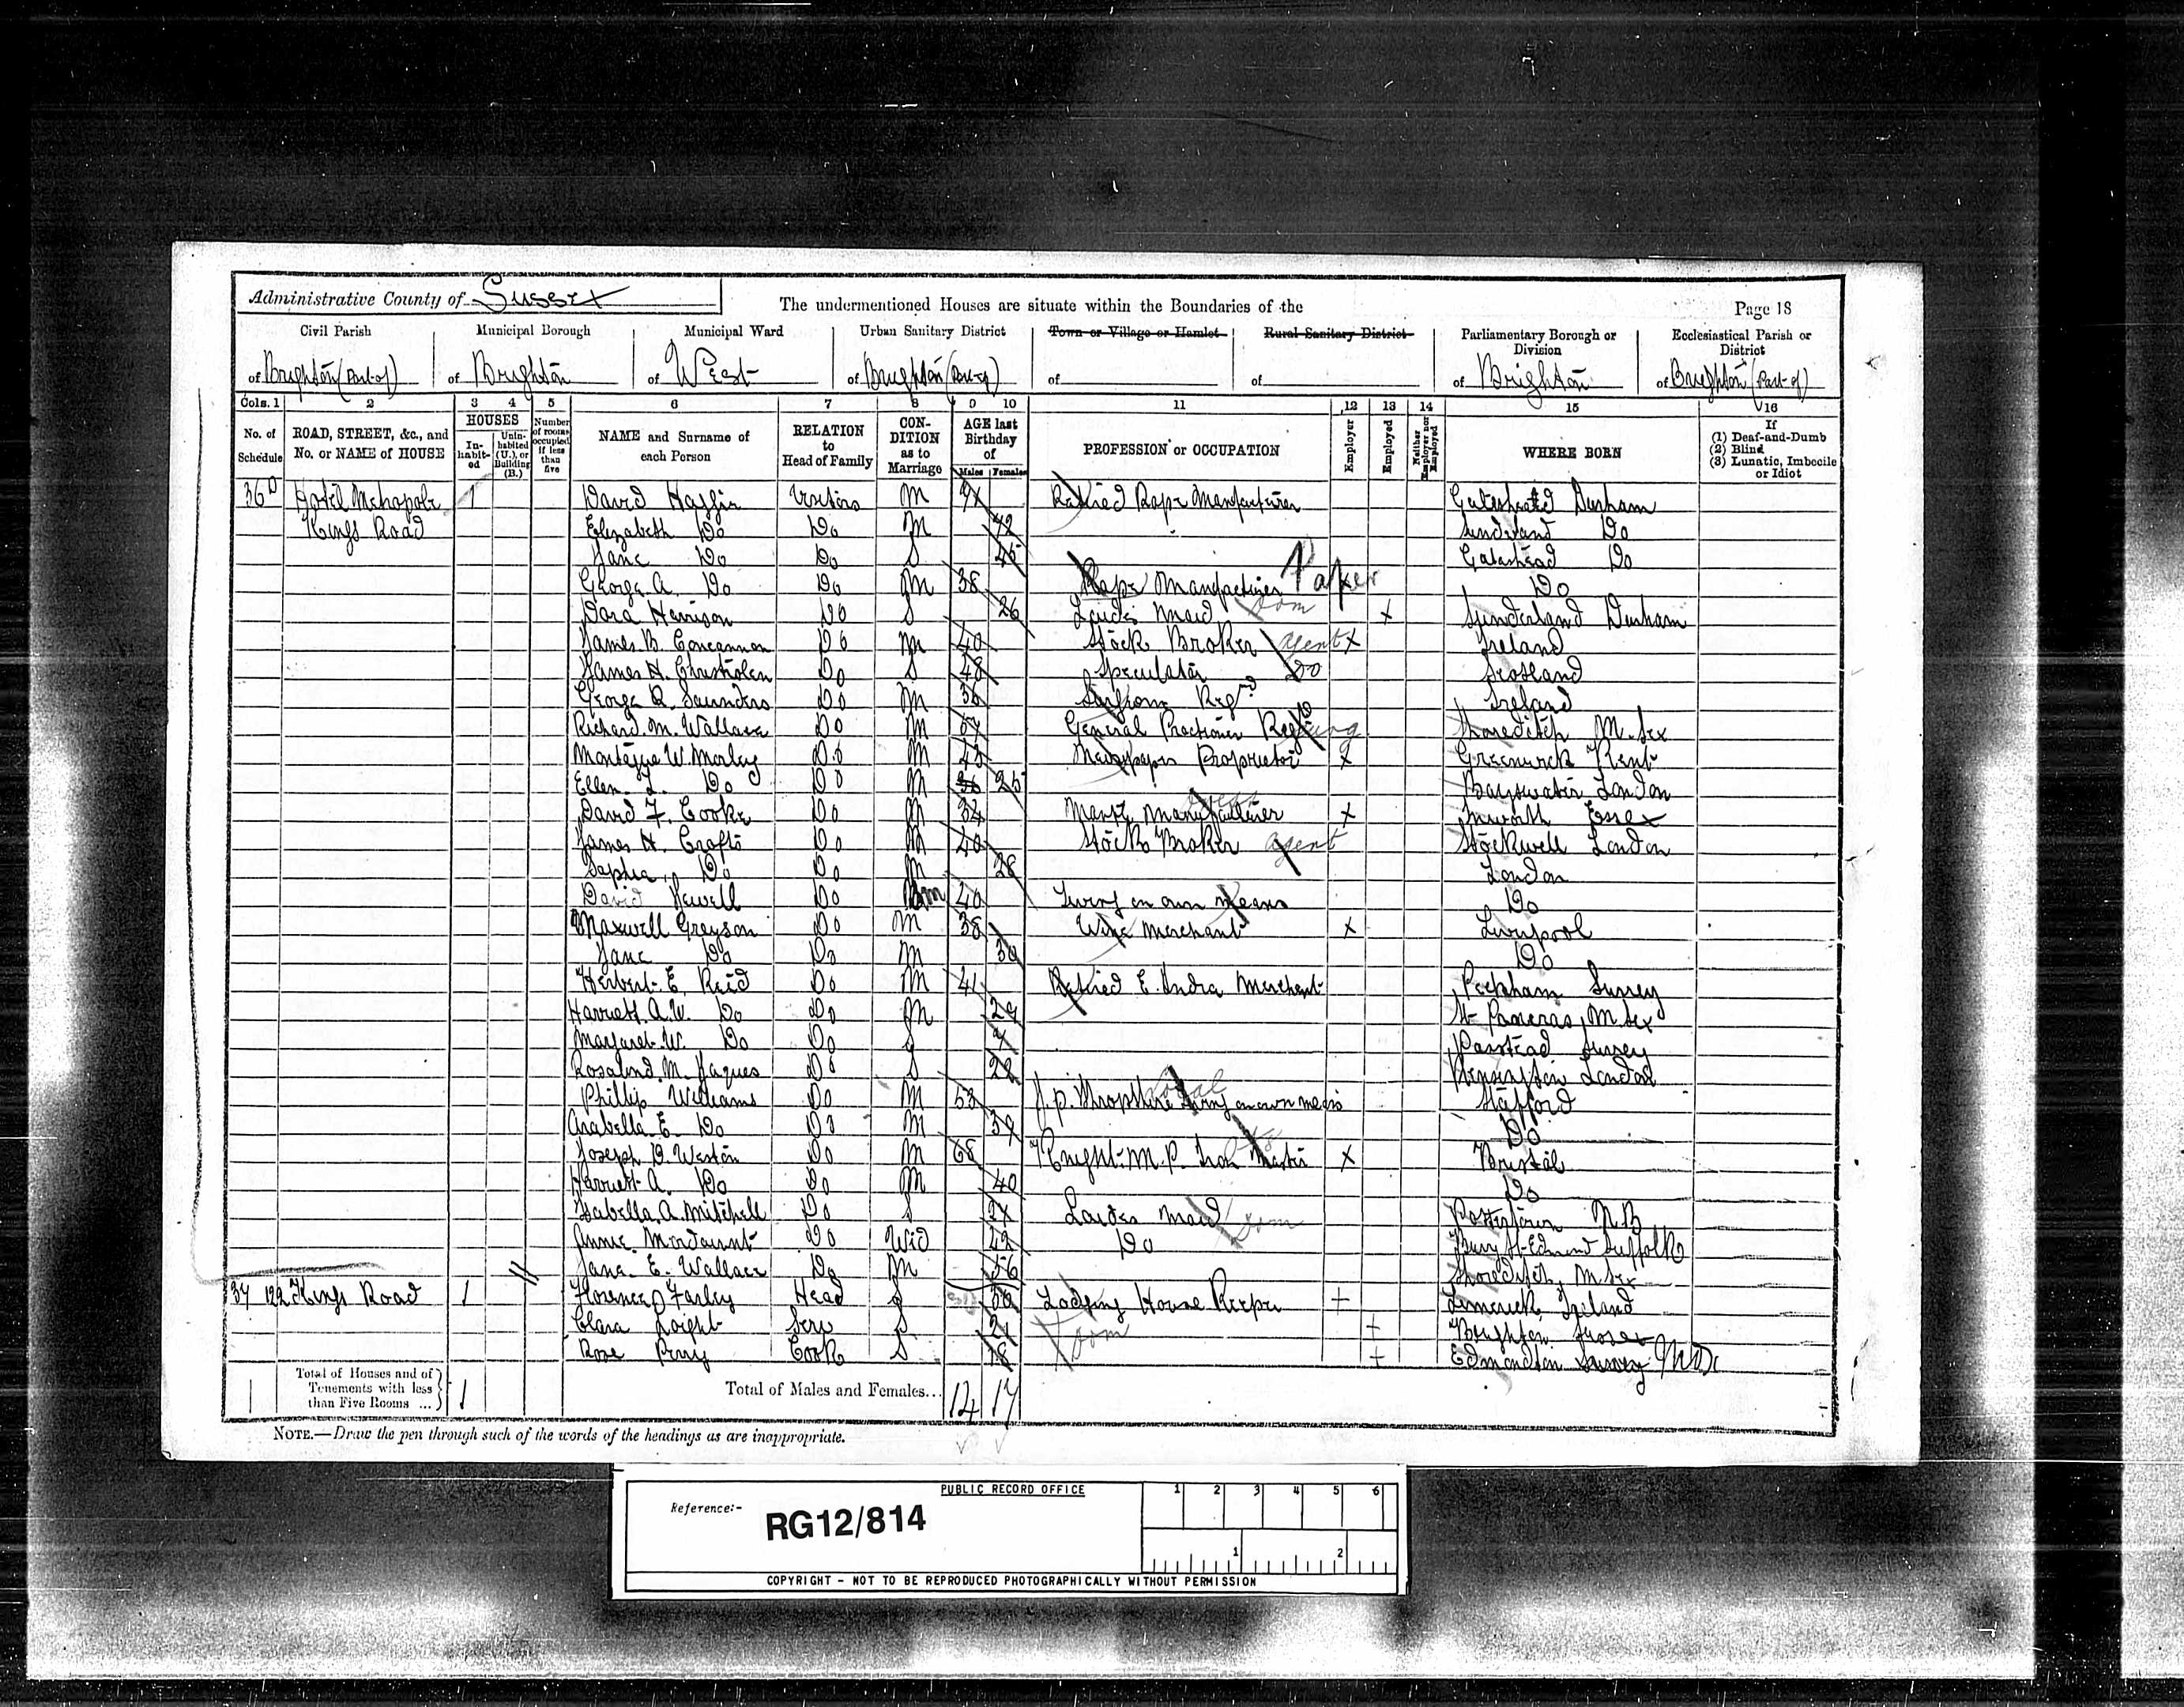 Administrative County of Sussex
The undermentioned Houses are situate within the Boundaries of the
Page 18
Civil Parish
Municipal Borough
Municipal Ward
Urban Sanitary District
Town or Village or Hamlet
Rural Sanitary District
Parliamentary Borough or Division
Ecclesiastical Parish or District
of Brighton (Part of)
of Brighton
of West
of Brighton (Part of)
of
of
of Brighton
of Brighton (Part of)
Cols. 1 2 3 4 5 6 7 8 9 10 11 12 13 14 15 16
No. of Schedule
ROAD, STREET, &c., and No. or NAME of HOUSE
HOUSES
In-habit-ed
Unin-habited (U.), or Building (B.)
Number of rooms occupied if less than five
NAME and Surname of each Person
RELATION to Head of Family
CON-DITION as to Marriage
AGE last Birthday of
Males Females
PROFESSION or OCCUPATION
Employer
Employed
Neither Employer nor Employed
WHERE BORN
If
(1) Deaf-and-Dumb
(2) Blind
(3) Lunatic, Imbecile or Idiot
36 Hotel Metropole 1 David Visitors M Retired Rope Manufacturer Gateshead Durham
Kings Road Elizabeth Do Do M 72 Sunderland Do
Jane Do Do S 45 Gateshead Do
George A. Do Do M 38 Rope Manufacturer Do
Dora Harrison Do S 26 Ladies Maid Dom X Sunderland Durham
James B. Concannon Do M 40 Stock Broker agent X Ireland
James H. Do S 48 Speculator Do Scotland
George R. Saunders Do M 36 Ireland
Richard M. Wallace Do M 57 General Practioner Shoreditch M.sex
Montague W. Morley Do M 43 Newspaper Proprietor X Greenwich Kent
Ellen L. Do Do M 25 Bayswater London
David F. Cooke Do M 34 Manufacturer X Inworth Essex
James H. Crofts Do M 40 Stock Broker agent Stockwell London
Sophia Do Do M 28 London
David Newell Do M 40 Living on own means Do
Maxwell Greyson Do M 38 Wine Merchant X Liverpool
Jane Do Do M 30 Do
Herbert E. Reid Do M 41 Retired E. India Merchant Peckham Surrey
Harriett A.W. Do Do M 29 St Pancras, M.sex
Margaret W. Do Do S 7 Surrey
Rosalind M. Jaques Do S 22 Kensington London
Phillip Williams Do M 53 J.P. Shropshire Living on own means Stafford
Arabella E. Do Do M 39 Do
Joseph D. Weston Do M 68 Knight M.P. Iron Master X Bristol
Harriett A. Do Do M 40 Do
Isabella A. Mitchell Do S Ladies Maid Dom N.B
Annie Mordaunt Do Wid 42 Do Bury St Edmond Suffolk
Jane E. Wallace Do M 56 Shoreditch, M.sex
37 122 Kings Road 1 Florence Farley Head S Lodging House Keeper + Limerick Ireland
Clara Serv S 21 Dom + Brighton Sussex
Rose Perry Cook S 18 + Edmonton Surrey Mdx
1
Total of Houses and of Tenements with less than Five Rooms ...
1
Total of Males and Females...
14 17
NOTE.—Draw the pen through such of the words of the headings as are inappropriate.
PUBLIC RECORD OFFICE
Reference:-
RG12/814
1 2 3 4 5 6
1 2
COPYRIGHT - NOT TO BE REPRODUCED PHOTOGRAPHICALLY WITHOUT PERMISSION